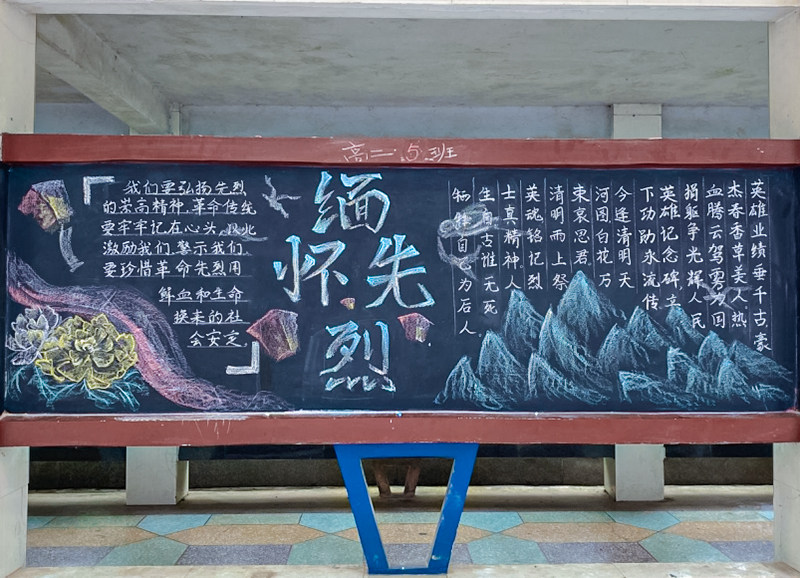 高二.5班
我们要弘扬先烈
的崇高精神,革命传统
要牢牢记在心头,以此
激励我们.警示我们.
要珍惜革命先烈用
鲜血和生命
换来的社
会安定.
缅
怀先
烈
英雄业绩垂千古,豪
杰春香草美人.热
血腾云驾雾为国
捐躯争光辉人民
英雄记念碑.立
下功助永流传
今逢清明天
河图白花万
束哀思君
清明而上祭
英魂铭忆烈
士真精神人
生自古谁无死
牺牲自己为后人